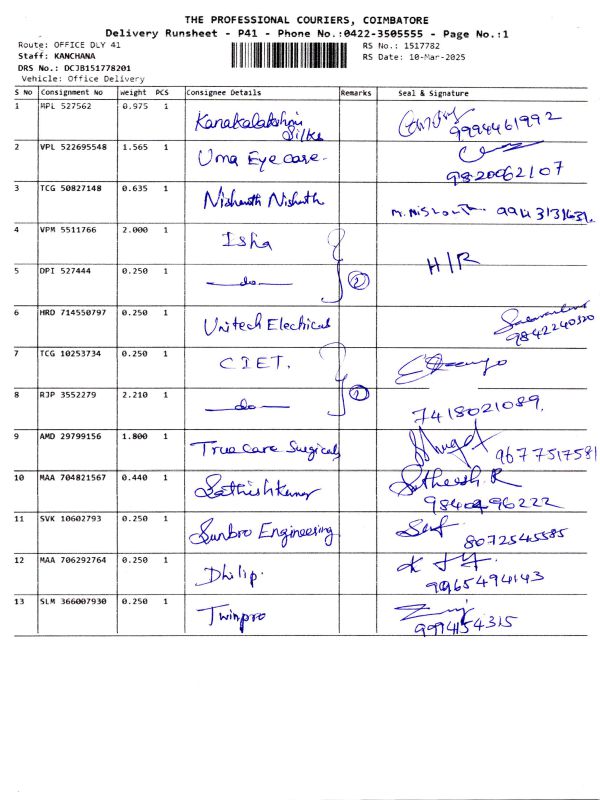 THE PROFESSIONAL COURIERS, COIMBATORE
Delivery Runsheet - P41 - Phone No.:0422-3505555 - Page No.:1
Route: OFFICE DLY 41
RS No.: 1517782
Staff: KANCHANA
RS Date: 10-Mar-2025
DRS No.: DCJB151778201
Vehicle: Office Delivery
S No Consignment No Weight PCS Consignee Details Remarks Seal & Signature
1 MPL 527562 0.975 1 Kanakalakshmi Silks 9994461992
2 VPL 522695548 1.565 1 Uma Eye care. 9820062107
3 TCG 50827148 0.635 1 Nishanth Nishnth M. Nishanth.
4 VPM 5511766 2.000 1 Isha
5 DPI 527444 0.250 1 —do— 2 H/R
6 HRD 714550797 0.250 1 Unitech Electrical 9842240320
7 TCG 10253734 0.250 1 CIET.
8 RJP 3552279 2.210 1 —do— 2 7418021089.
9 AMD 29799156 1.800 1 True care Surgicals 9677517581
10 MAA 704821567 0.440 1 Sathishkumar Satheesh. R 9840496222
11 SVK 10602793 0.250 1 Sunbro Engineering 8072545585
12 MAA 706292764 0.250 1 Dhilip. 9965494143
13 SLM 366007930 0.250 1 Twinpro 9994154315